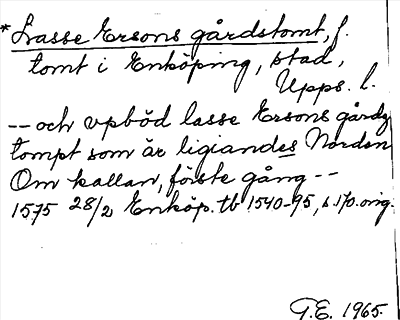 *Lasse Ersons gårdstomt, f.
tomt i Enköping, stad,
Upps. l.
-- och vpböd lasse Ersons gårdz
tompt som är ligiandes Nordsn
Om kallan, förste gång --
1575 28/2 Enköp. tb 1540-95, s. 170. orig.
G.E. 1965.